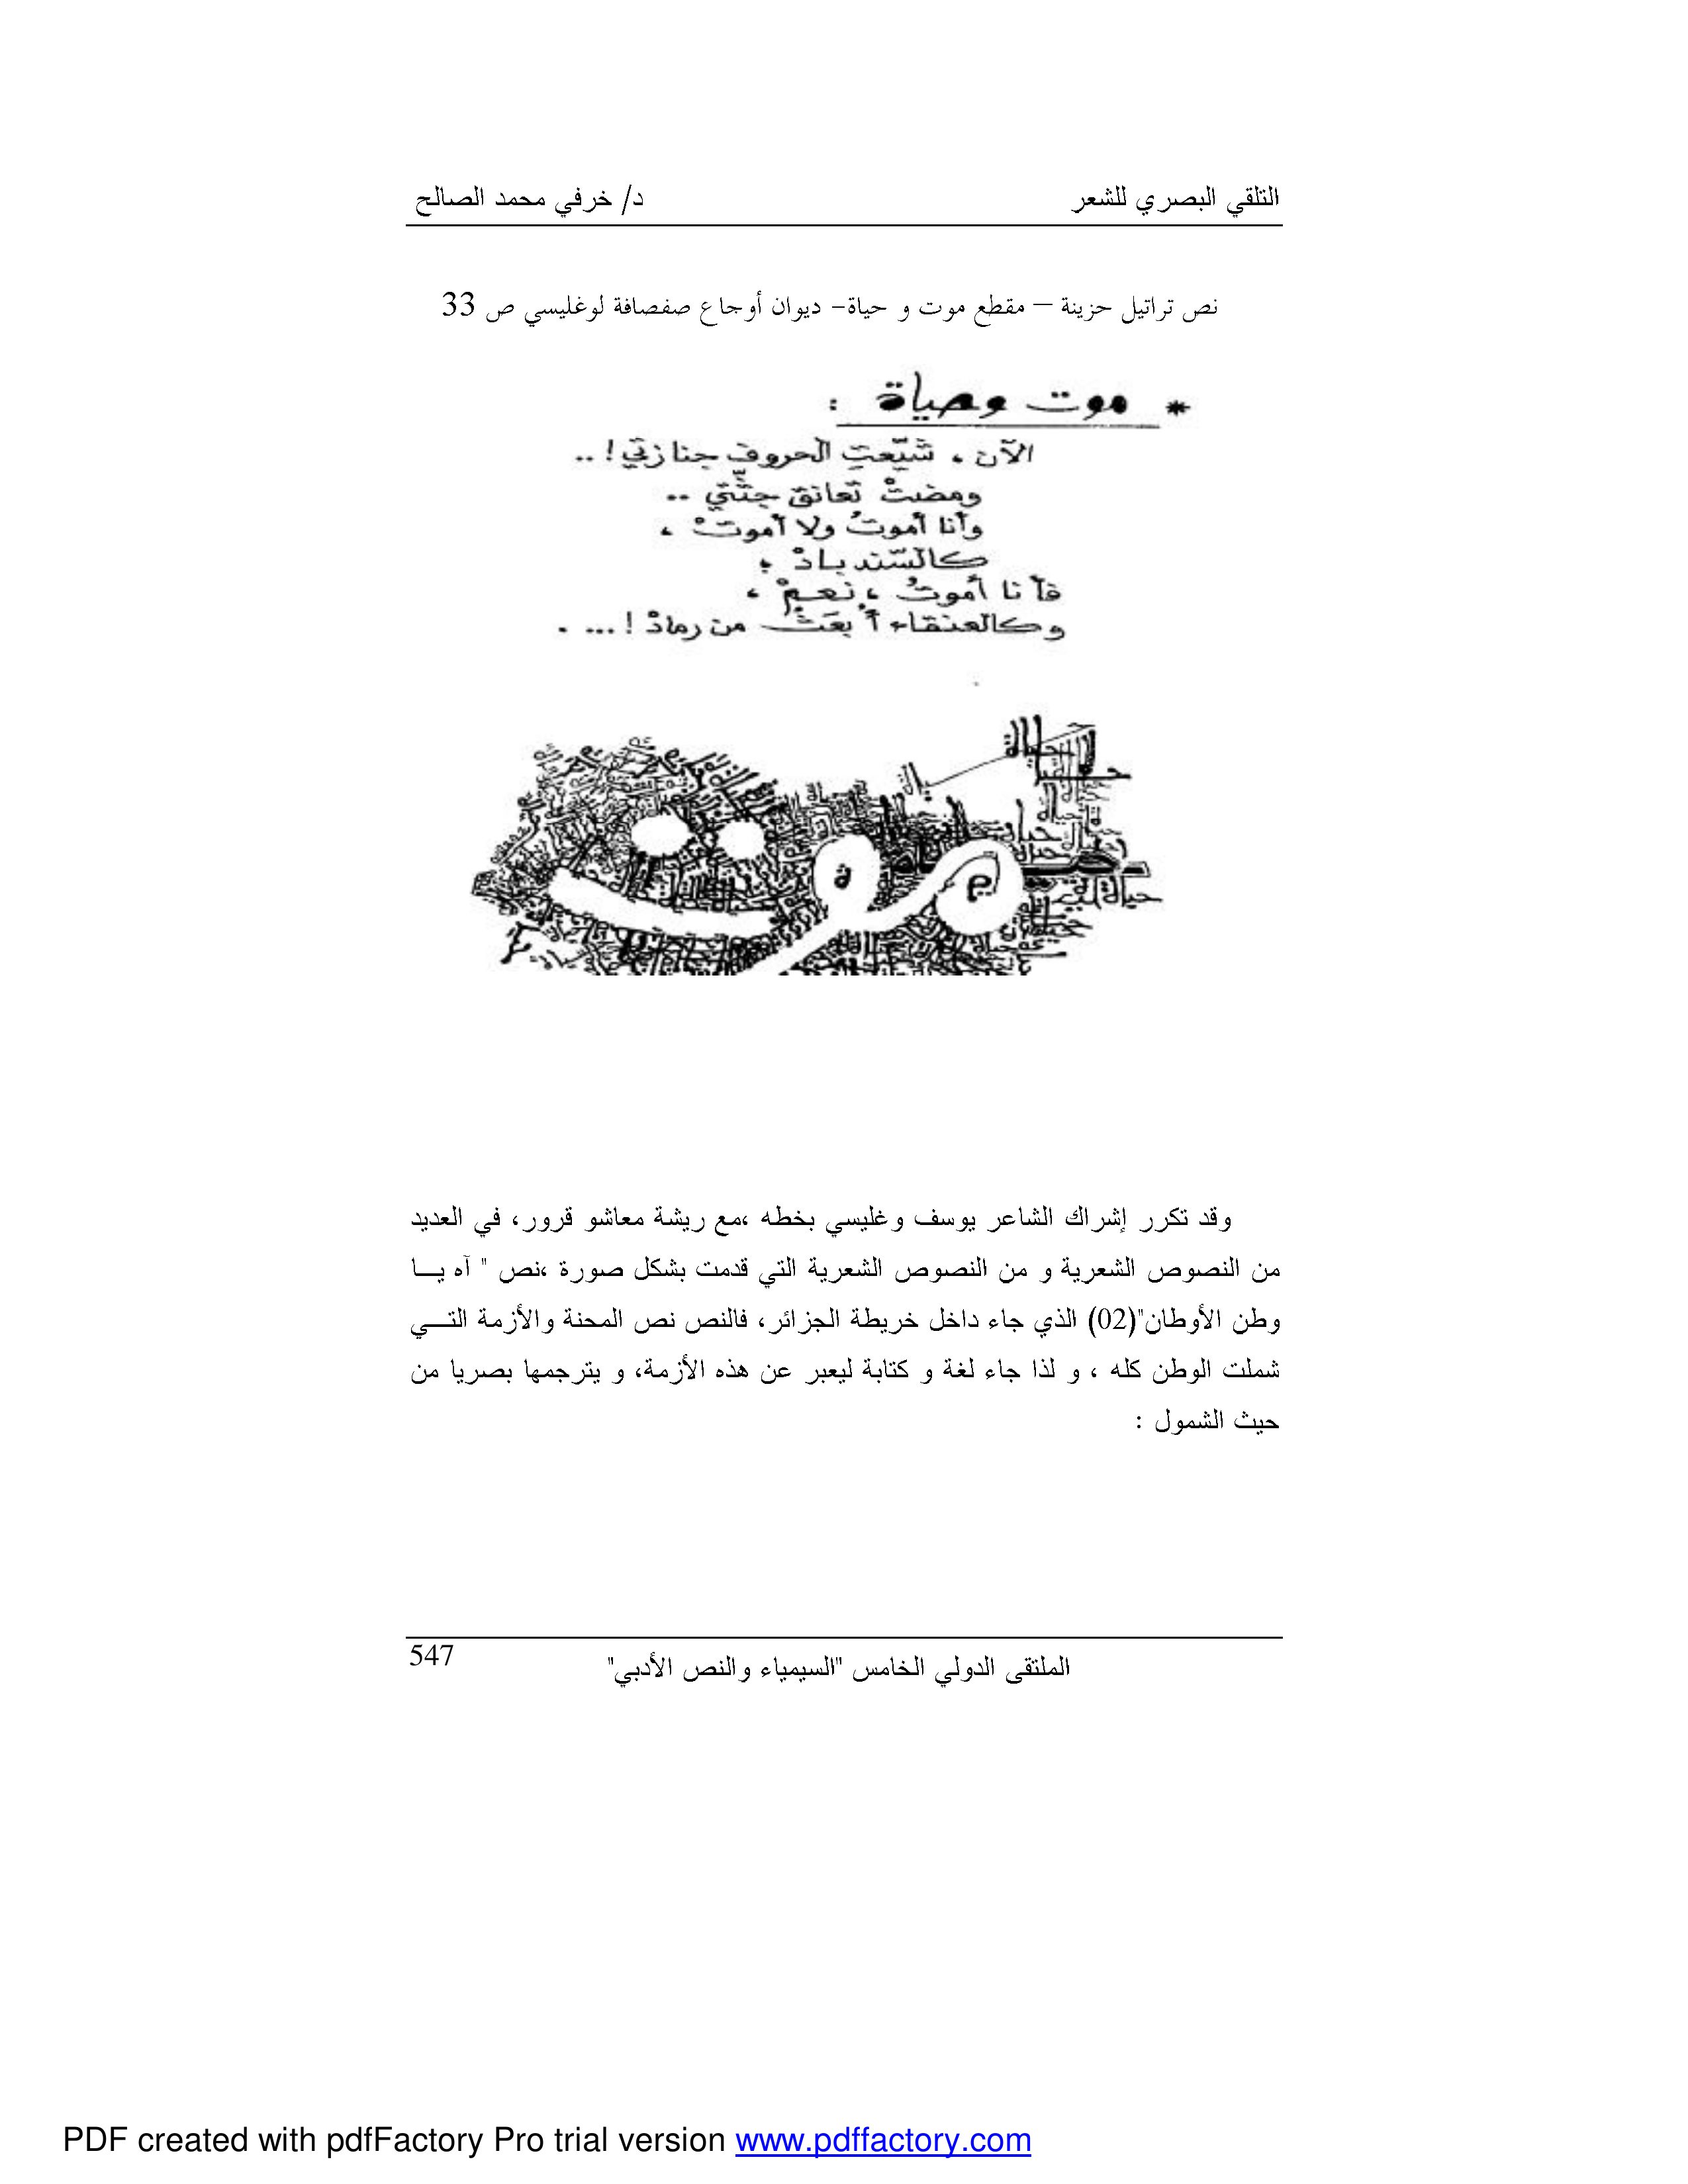 التلقي البصري للشعر د/ خرفي محمد الصالح
نص تراتيل حزينة – مقطع موت و حياة- ديوان أوجاع صفصافة لوغليسي ص 33
* موت وحياة :
الآن ، شيّعتِ الحروف جنازتي ! ..
ومضتْ تعانق جثّتي ..
وأنا أموتُ ولا أموتْ ،
كالسّندبادْ ؛
فأنا أموتُ ، نعمْ ،
وكالعنقاء أُبعَثُ من رمادْ ! ... .
موت
و
م
حياة
وقد تكرر إشراك الشاعر يوسف وغليسي بخطه ،مع ريشة معاشو قرور، في العديد
من النصوص الشعرية و من النصوص الشعرية التي قدمت بشكل صورة ،نص " آه يـــا
وطن الأوطان"(02) الذي جاء داخل خريطة الجزائر، فالنص نص المحنة والأزمة التـــي
شملت الوطن كله ، و لذا جاء لغة و كتابة ليعبر عن هذه الأزمة، و يترجمها بصريا من
حيث الشمول :
الملتقى الدولي الخامس "السيمياء والنص الأدبي" 547
PDF created with pdfFactory Pro trial version www.pdffactory.com